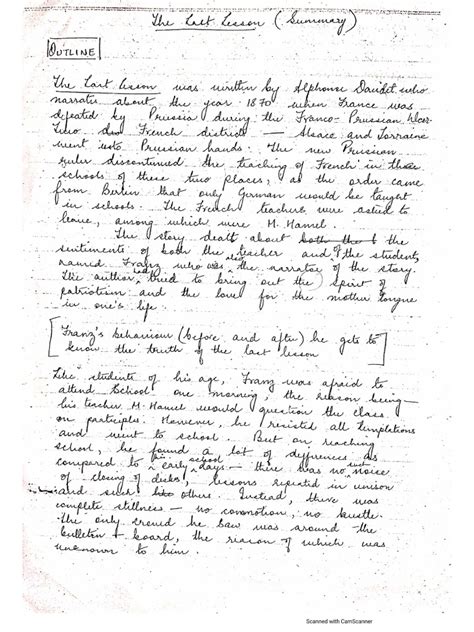 The Last Lesson (Summary)
OUTLINE
The Last Lesson was written by Alphonse Daudet who
narrates about the year 1870 when France was
defeated by Prussia during the Franco-Prussian War.
Two French districts — Alsace and Lorraine
went into Prussian hands. The new Prussian
ruler discontinued the teaching of French in the
schools of these two places, as the order came
from Berlin that only German would be taught
in schools. The French teachers were asked to
leave, among which were M. Hamel.
The story dealt about both the the
sentiments of both the teacher and of the students,
named Franz who was also the narrator of the story.
The author tried to bring out the spirit of
patriotism and the love for the mother tongue
in one's life.
[Franz's behaviour (before and after) he gets to
know the truth of the last lesson]
Like students of his age, Franz was afraid to
attend School one morning, the reason being —
his teacher M. Hamel would question the class
on participles. However, he resisted all temptations
and went to school. But on reaching
school, he found a lot of differences as
compared to his early school days — there was no such noise
of closing of disks, lessons repeated in unison
and others. Instead, there was
complete stillness — no commotion, no bustle.
The only crowd he saw was around the
bulletin board, the reason of which was
unknown to him.
Scanned with CamScanner